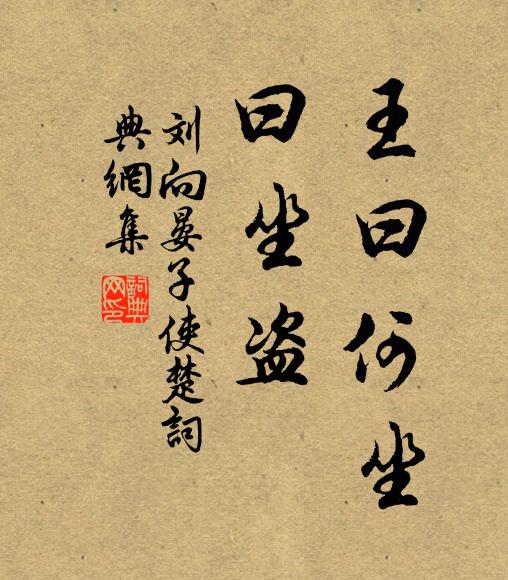 王曰何坐
曰坐盗
刘向晏子使楚詞
典網集
詞典
网印